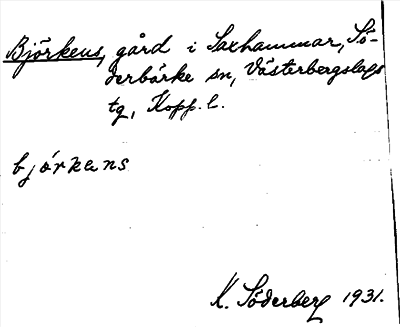 Björkens, gård i Saxhammar, Sö-
derbärke sn, Västerbergslags
tg, Kopp. l.
björkens
K. Söderberg 1931.